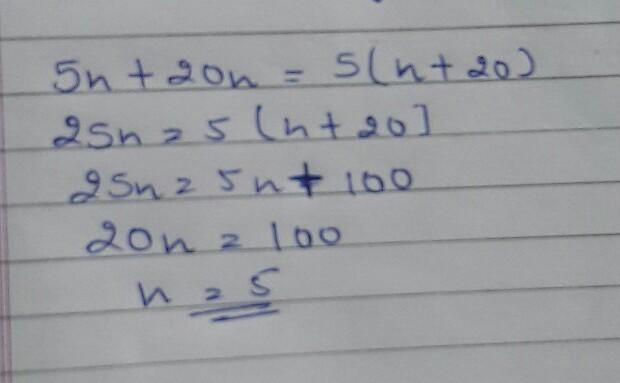 5n + 20n = 5(n + 20)
25n = 5 (n + 20]
25n = 5n + 100
20n = 100
n = 5